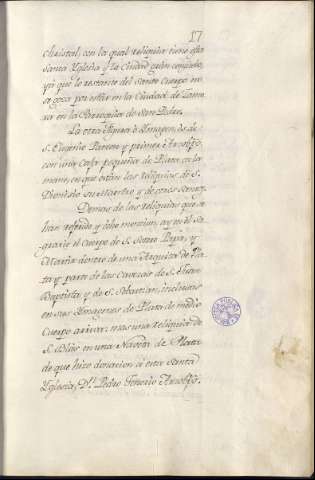 17
christal, con la qual reliquia tiene esta
Santa Yglesia y la Ciudad gran consuelo,
ya que lo restante del Santo Cuerpo no
se goza por estar en la Ciudad de Zamo
ra en la Parroquia de San Pedro.
La otra figura o Ymagen, es de
S. Eugenio Patron y primer Arzobispo,
con una Caja pequeña de Plata en la
mano, en que estan las reliquias de S.
Dionisio su Maestro y de otros Santos.
Demas de las reliquias que se
han referido y echo mencion, ay en el Sa
grario el Cuerpo de S. Sotero Papa, y
Martir dentro de una Arquita de Pla
ta y parte de las Cavezas de S. Juan
Baptista y de S. Sebastian, inclusas
en sus Ymagenes de Plata de medio
Cuerpo arriva: mas una reliquia de
S. Blas en una Nave de Plata
de que hizo donacion a esta Santa
Yglesia, Dn. Pedro Tenorio Arzobispo,